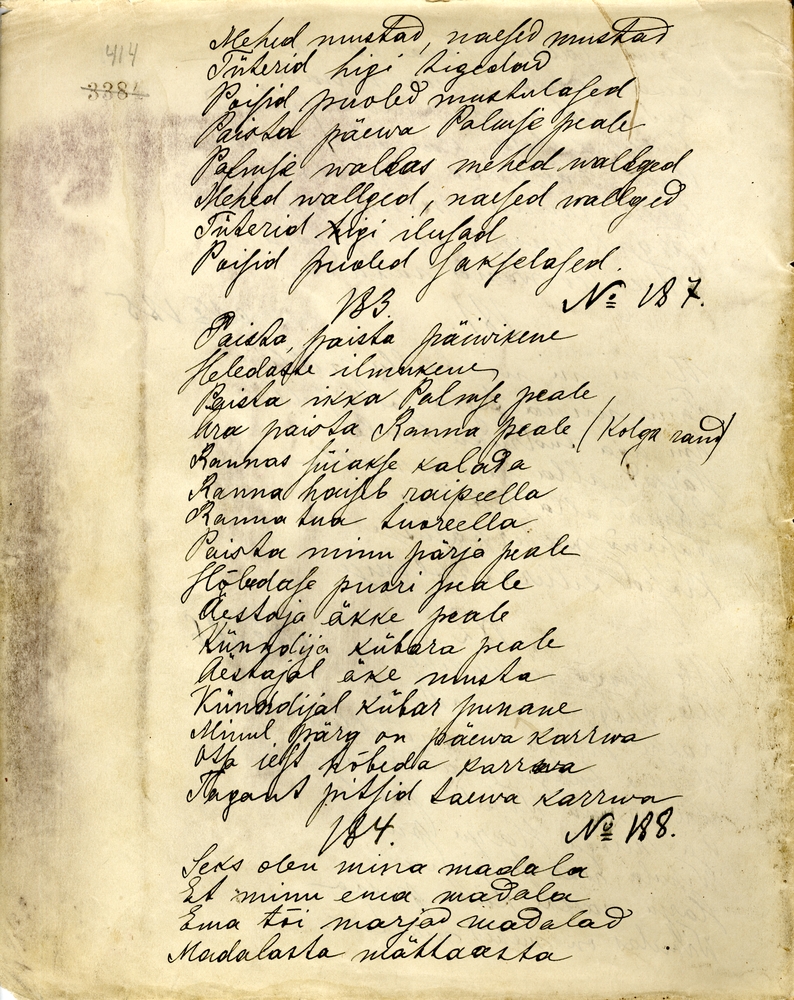 414
3384
Mehed mustad, naesed mustad
Tüterid higi tigedad
Poisid puoled mustulased
Paista päewa Palmse peale
Palmse wallas mehed wallged
Mehed wallged, naesed wallged
Tüterid higi ilusad
Poisid puoled sakselased.
183. № 187.
Paista, paista päiwikene
Heledaste ilmukene
Paista ikka Palmse peale
Ära paista Ranna peale (Kolga rand)
Rannas süiakse kalada
Ranna haiseb raipeella
Ranna tua tuoreella
Paista minu pärja peale
Hõbedase puori peale
Äestaja äkke peale
Künndija kübara peale
Äestajal äke musta
Künndijal kübar punane
Minul pärg on päewa karrwa
Otsa iest hõbeda karrwa
Tagant pitsid taewa karrwa
184. № 188.
Seks olen mina madala
Et minu ema madala
Ema tõi marjad madalad
Madalasta mättaasta